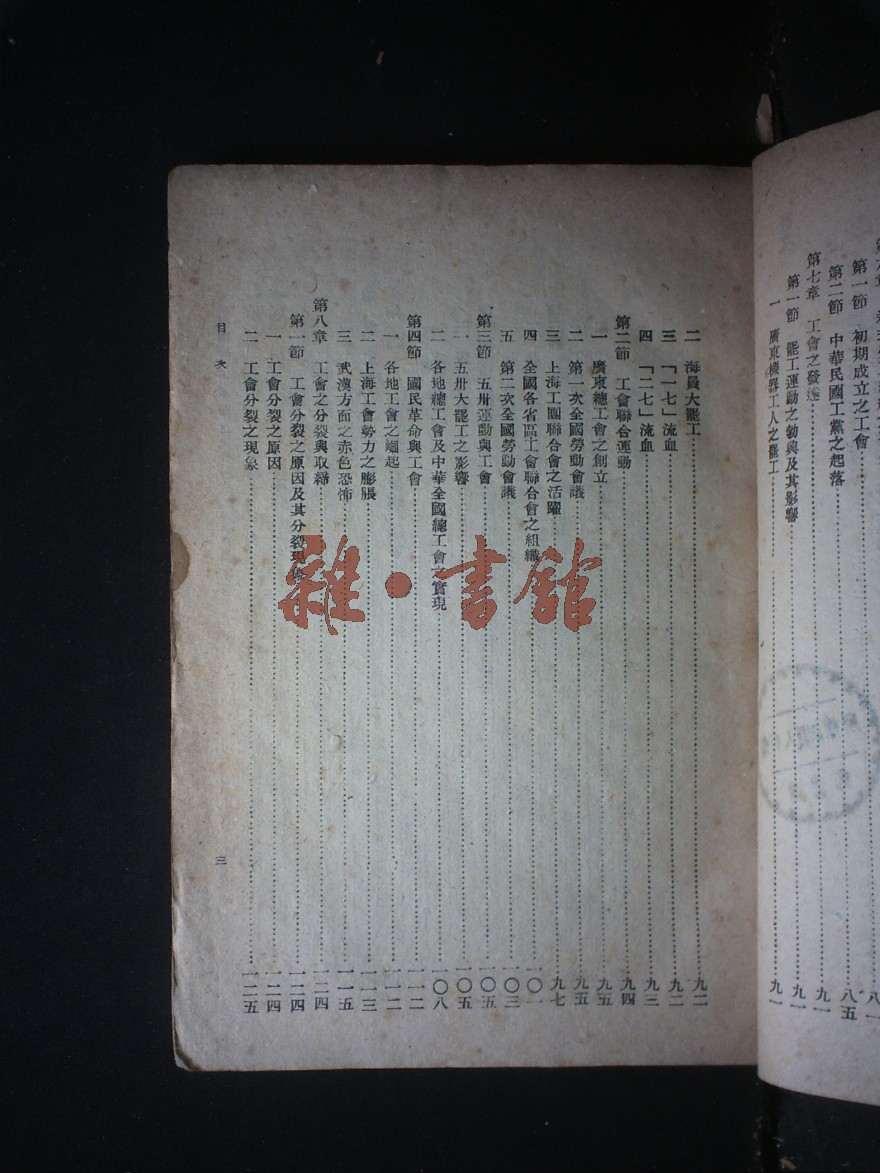 第一節　初期成立之工會
第二節　中華民國工黨之起落……八五
第七章　工會之發達……九一
第一節　罷工運動之勃興及其影響……九一
一　廣東機器工人之罷工……九一
二　海員大罷工……九二
三　「一七」流血……九二
四　「二七」流血……九三
第二節　工會聯合運動……九四
一　廣東總工會之創立……九五
二　第一次全國勞動會議……九五
三　上海工團聯合會之活躍……九七
四　全國各省區工會聯合會之組織……一〇一
五　第二次全國勞動會議……一〇三
第三節　五卅運動與工會……一〇五
一　五卅大罷工之影響……一〇五
二　各地總工會及中華全國總工會之實現……一〇八
第四節　國民革命與工會……一一二
一　各地工會之崛起……一一二
二　上海工會勢力之膨脹……一一三
三　武漢方面之赤色恐怖……一一五
第八章　工會之分裂與取締……一二四
第一節　工會分裂之原因及其分裂現象……一二四
一　工會分裂之原因……一二四
二　工會分裂之現象……一二五
目次　三
雜·書館